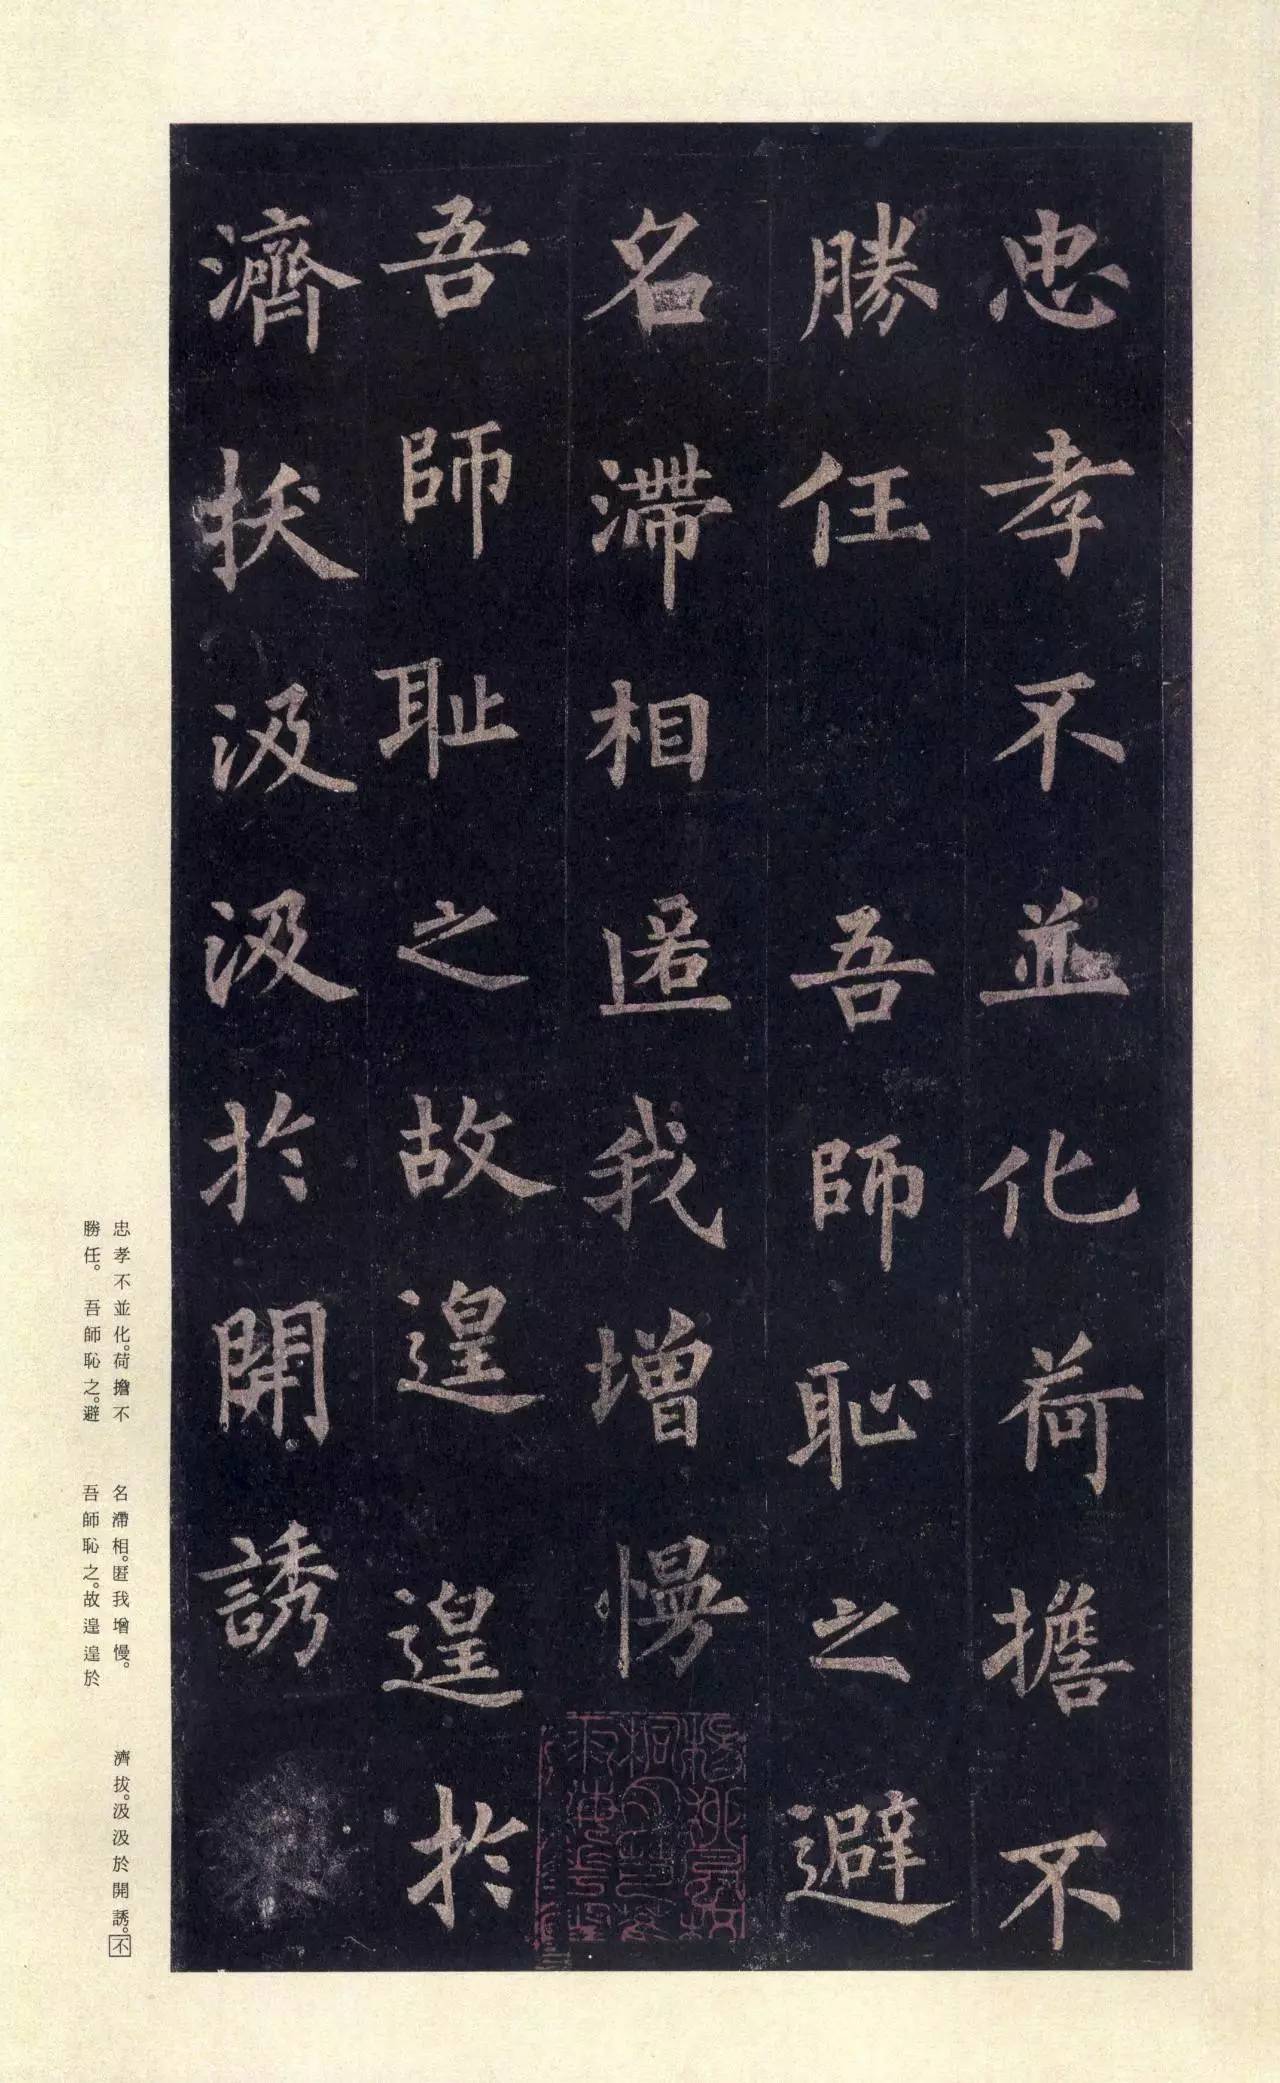 忠孝不並化荷擔不
勝任 吾師恥之避
名滯相匿我增慢
吾師耻之故遑遑於
濟拔汲汲於開誘
忠孝不並化。荷擔不
勝任。 吾師恥之。避
名滯相。匿我增慢。
吾師恥之。故遑遑於
濟拔。汲汲於開誘。不